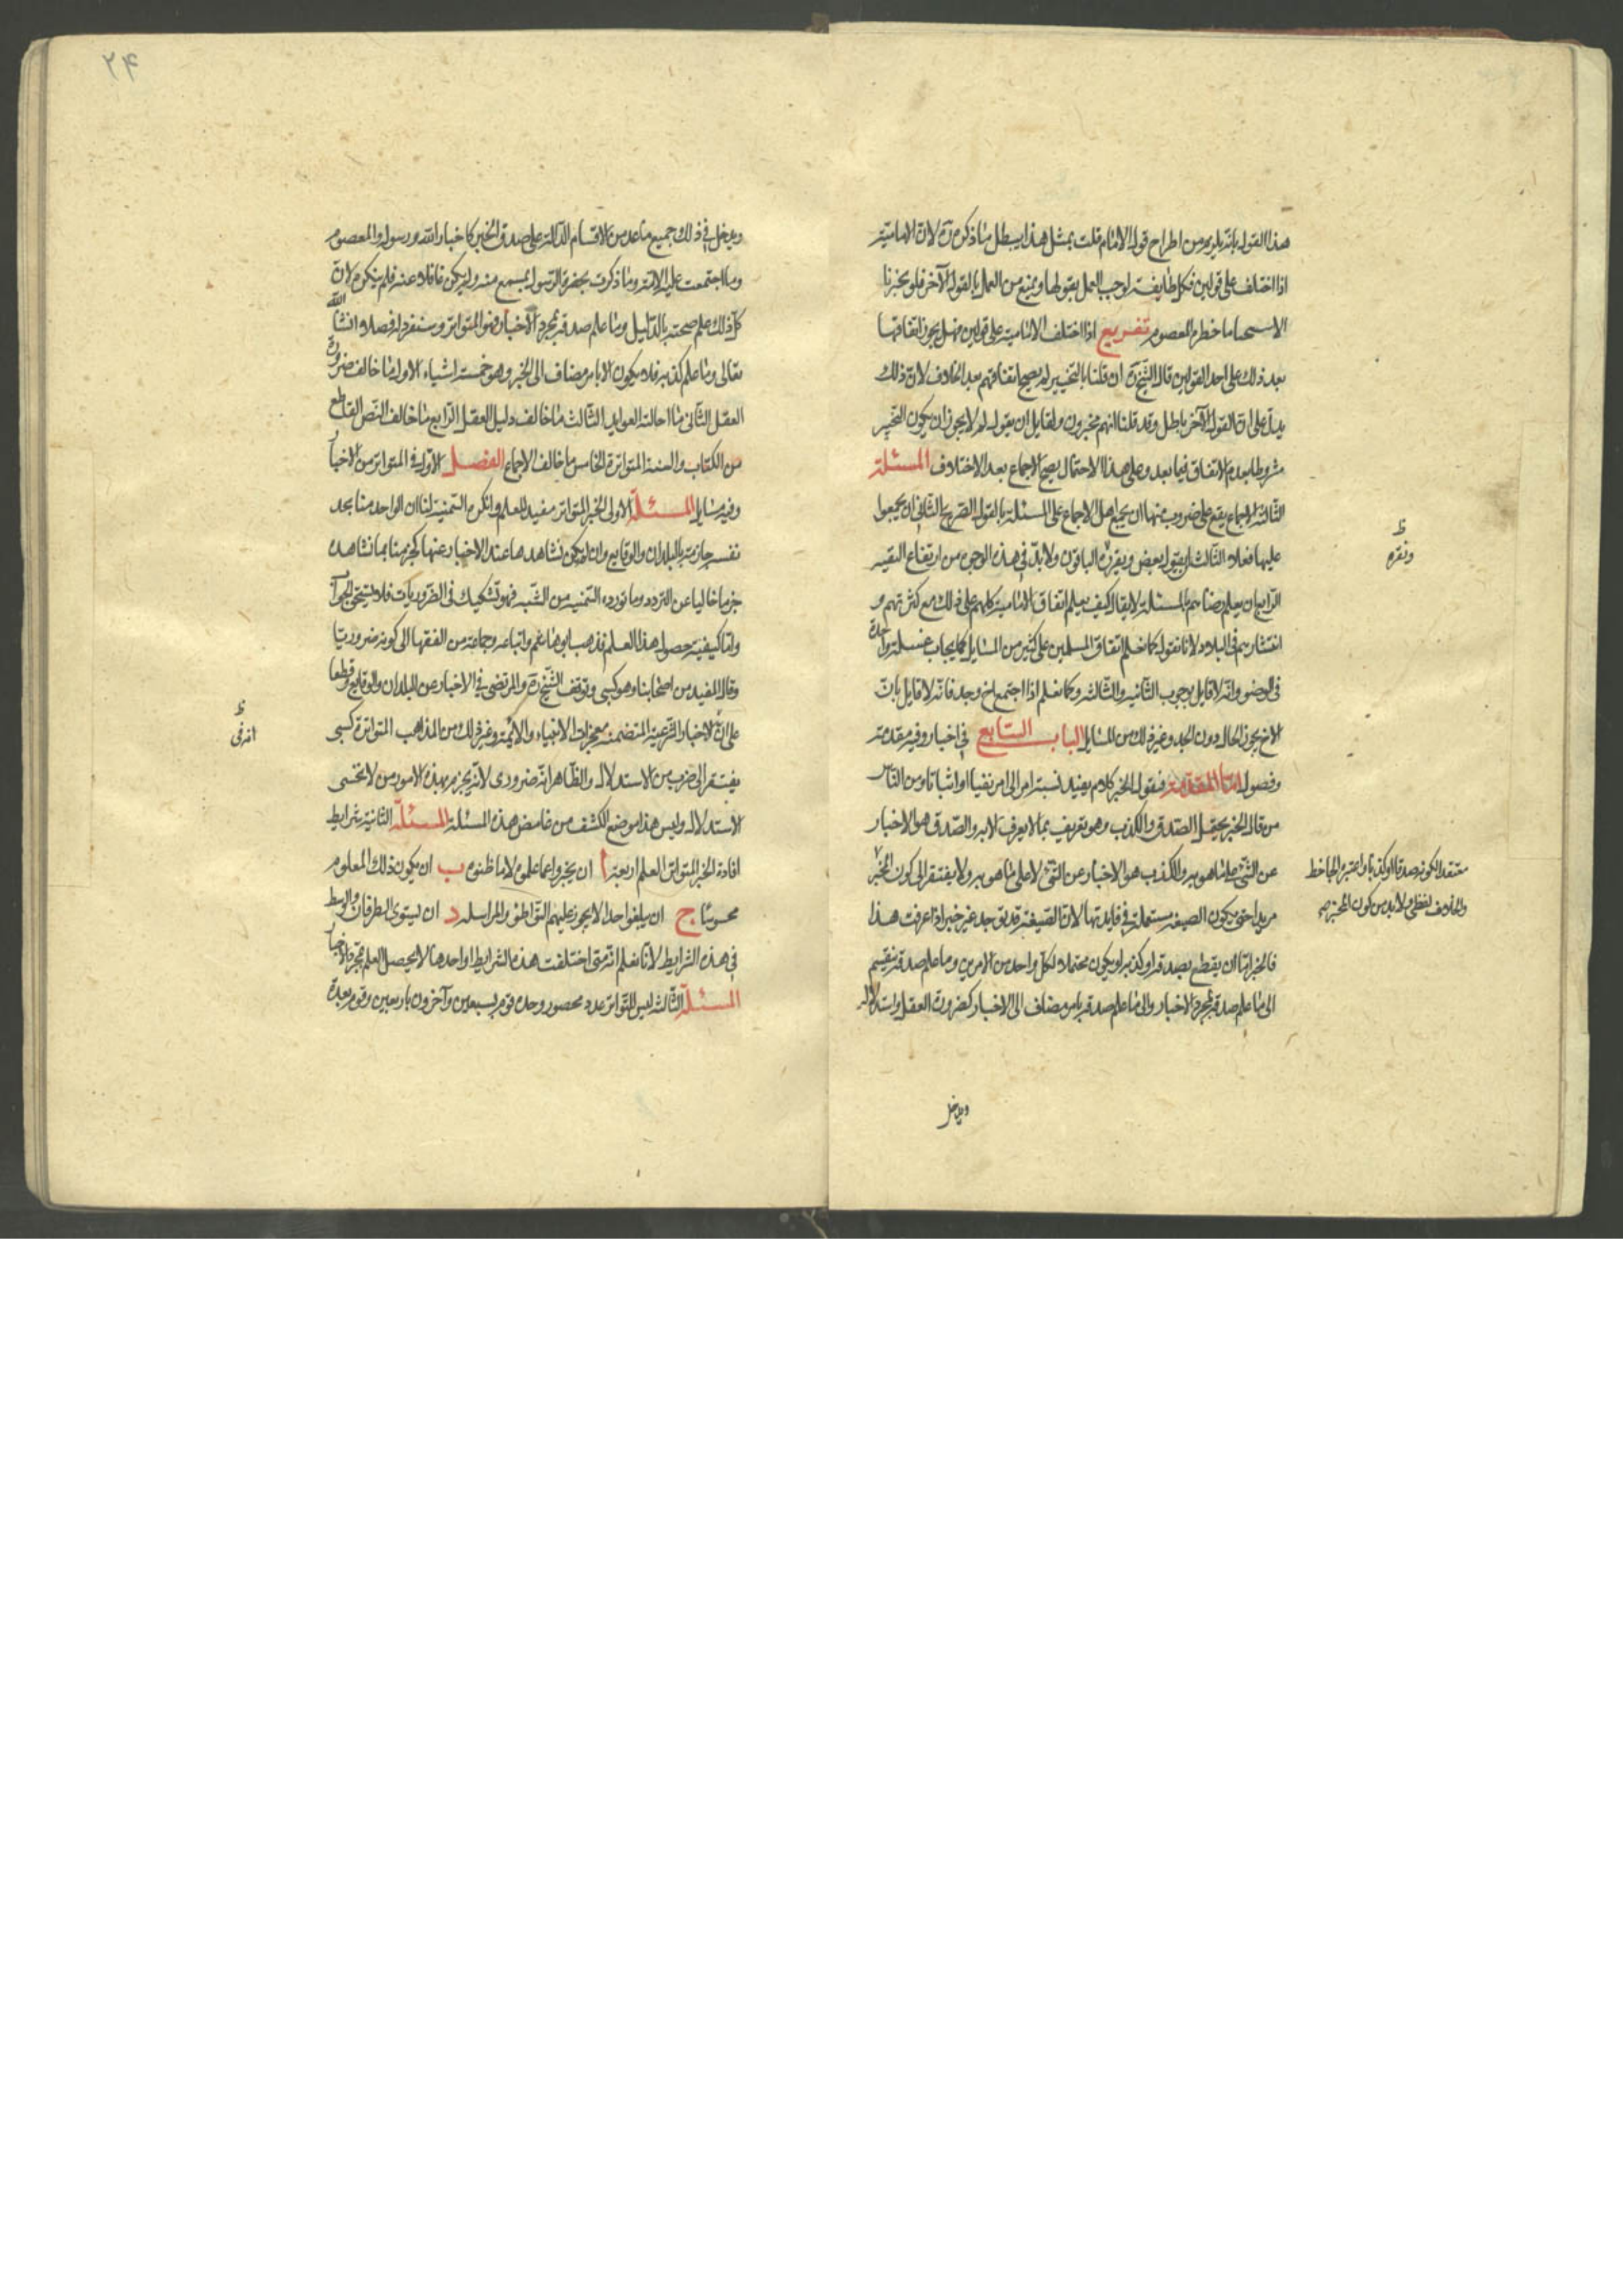 هذا القول بانه يلزم من اطراح قول الامام قلت بمثل هذا يبطل ما ذكره ره لان الامامية
اذا اختلف على قولين فكل طايفة لوجب العمل بقولها ويمنع من العمل بالقول الآخر فلو تخيرنا
لاستبحنا ما حظره المعصوم تفريع اذا اختلف الامامية على قولين فهل يجوز اتفاقها
بعد ذلك على احد القولين قال الشيخ ره ان قلنا بالتخيير لم يصح اتفاقهم بعد الخلاف لان ذلك
يدل على ان القول الآخر باطل وقد قلنا انهم مخيرون ولقايل ان يقول لم لا يجوز ان يكون التخيير
مشروطا بعدم الاتفاق فيما بعد وعلى هذا الاحتمال يصح الاجماع بعد الاختلاف المسئلة
الثالثة الاجماع يقع على ضروب منها ان يجمع اهل الاجماع على المسئلة بالقول الصريح الثاني ان يجمعوا
عليها فعلا الثالث ان يقول بعض ويقره الباقون ولا بد في هذه الوجوه من ارتفاع التقية
الرابع ان يعلم رضاهم بالمسئلة لا يقال كيف يعلم اتفاق الامامية كلهم على ذلك مع كثرتهم و
انتشارهم في البلاد لانا نقول كما نعلم اتفاق المسلمين على كثير من المسايل كايجاب غسلة واحدة
في الوضو وانه لا قايل بوجوب الثانية والثالثة وكما نعلم اذا اجتمع اخ وجد فانه لا قايل بان
الاخ يحوز المال دون الجد وغير ذلك من المسايل الباب السابع في اخبار وفيه مقدمة
وفصول اما المقدمة فنقول الخبر كلام يفيد نسبة امر الى امر نفيا او اثباتا ومن الناس
من قال الخبر يحتمل الصدق والكذب وهو تعريف بما لا يعرف الا به والصدق هو الاخبار
عن الشئ على ما هو به والكذب هو الاخبار عن الشئ لا على ما هو به ولا يفتقر الى كون المخبر
مريدا حتى يكون الصيغة مستعملة في فايدتها لان الصيغة قد توجد غير خبر اذا عرفت هذا
فالخبر اما ان يقطع بصدقه او كذبه او يكون محتملا لكل واحد من الامرين وما علم صدقه ينقسم
الى ما علم صدقه بمجرد الاخبار والى ما علم صدقه بامر مضاف الى الاخبار كضرورة العقل واستدلاله
ظ
ونقره
معتقدا لكونه صدقا او كذبا واعتبره الجاحظ
والخلاف لفظي ولا بد من كون المخبر صح
ويدخل
۲۴
ويدخل في ذلك جميع ما عد من الاقسام الدالة على صدق الخبر كاخبار الله ورسوله والمعصوم
وما اجتمعت عليه الامة وما ذكرت بحضرة الرسول بمسمع منه ولم يكن غافلا عنه فلم ينكره لان
كل ذلك علم صحته بالدليل وما علم صدقه بمجرد الاخبار فهو المتواتر وسنفرد له فصلا انشا الله
تعالى وما علم كذبه فلا يكون الا بامر مضاف الى الخبر وهو خمسة اشياء الاول ما خالف ضرورة
العقل الثاني ما احالته العوايد الثالث ما خالف دليل العقل الرابع ما خالف النص القاطع
من الكتاب والسنة المتواترة الخامس ما خالف الاجماع الفصل الاول في المتواتر من الاخبار
وفيه مسايل المسئلة الاولى الخبر المتواتر مفيد للعلم وانكره السمنية لنا ان الواحد منا يجد
نفسه جازمة بالبلدان والوقايع وان لم يكن نشاهدها عند الاخبار عنها كجزمنا بما نشاهده
جزما خاليا عن التردد وما تورده السمنية من الشبه فهو تشكيك في الضروريات فلا يستحق الجواب
واما كيفية حصول هذا العلم فذهب ابو هاشم واتباعه وجماعة من الفقها الى كونه ضروريا
وقال المفيد من اصحابنا وهو كسبي وتوقف الشيخ ره والمرتضى في الاخبار عن البلدان والوقايع وقطعا
على ان الاخبار الشرعية المتضمنة معجزات الانبياء والائمة وغير ذلك من المذاهب المتواترة كسبي
يفتقر الى ضرب من الاستدلال والظاهر انه ضروري لانه يجزم بهذه الامور من لا يحسن
الاستدلال وليس هذا موضع الكشف من غامض هذه المسئلة المسئلة الثانية شرايط
افادة الخبر المتواتر العلم اربعة أ ان يخبروا عما علموه لا ما ظنوه ب ان يكون ذلك المعلوم
محسوسا ج ان يبلغوا حدا لا يجوز عليهم التواطؤ والمراسلة د ان يستوي الطرفان والوسط
في هذه الشرايط لانا نعلم انه متى اختلفت هذه الشرايط او احدها لا يحصل العلم بمجرد الاخبار
المسئلة الثالثة ليس للتواتر عدد محصور وحده قوم بسبعين وآخرون باربعين وقوم بعدة
ظ